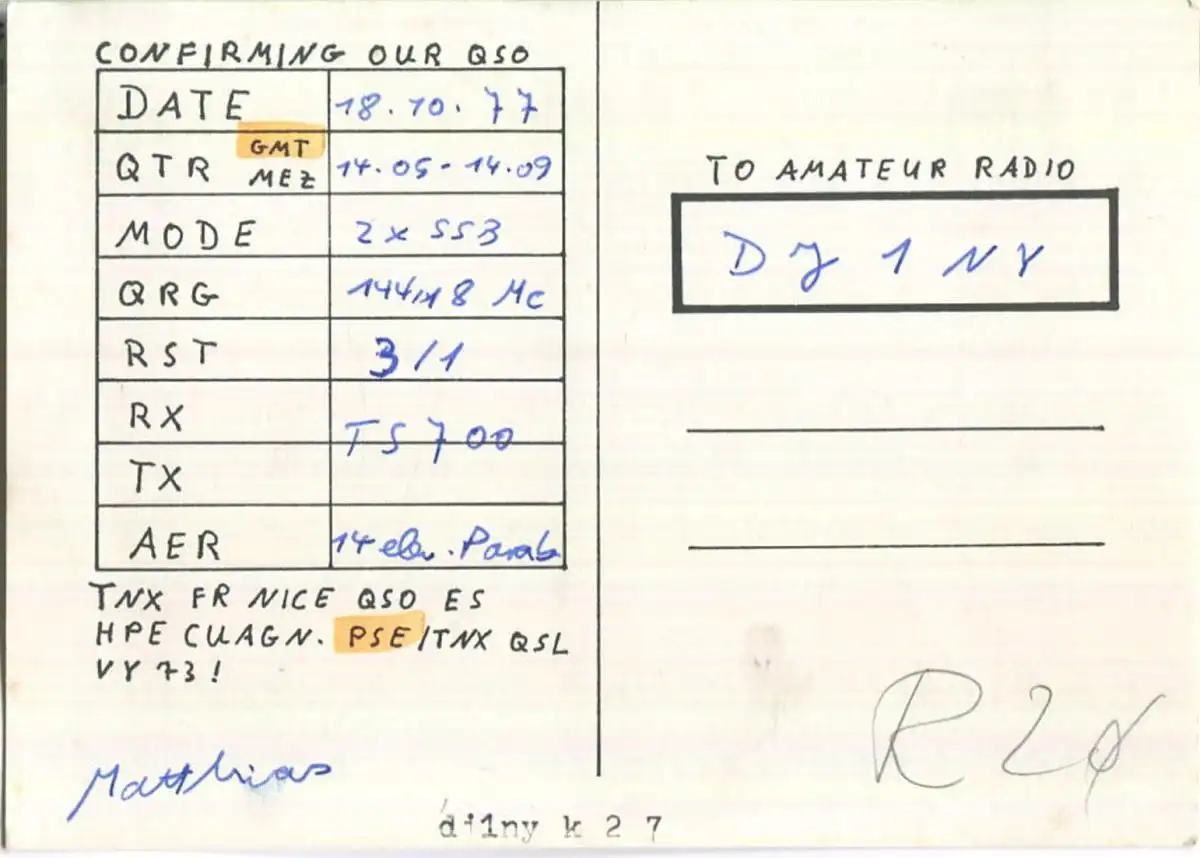 CONFIRMING OUR QSO
DATE 18.10.77
QTR GMT MEZ 14.05-14.09
MODE 2x SSB
QRG 144,18 Mc
RST 3/1
RX
TS 700
TX
AER 14 ele. Parab
TNX FR NICE QSO ES
HPE CUAGN. PSE/TNX QSL
VY 73!
Matthias
TO AMATEUR RADIO
DJ 1 NY
R 20
dj1ny k 2 7